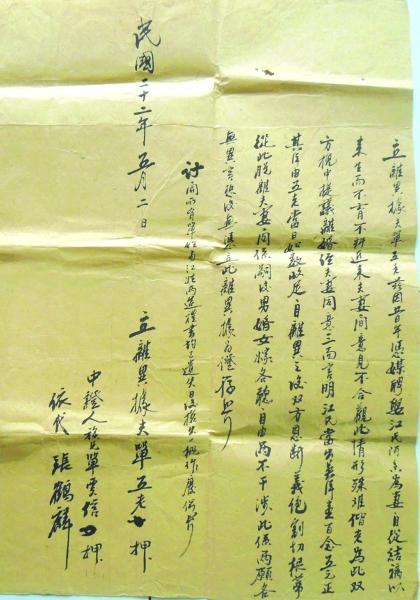 立離異據夫單五老茲因昔年憑媒聘娶江氏阿為妻自從結褵以
來生而不育不料近來夫妻間意見不合觀此情形殊難偕老為此双
方挽中提議離婚經夫妻同意三面言明江氏當出英洋壹百念五元正
其洋由五老當日如數收足自離異之後双方恩断義絕割切根蒂
從此脫離夫妻関係嗣後男婚女嫁各聽自由両不干涉此係両願各
無異言恐後無憑立此離異據為證存照
計開
民國二十二年五月二日
立離異據夫單五老押
中證人單雲信押
依代張鶴麟